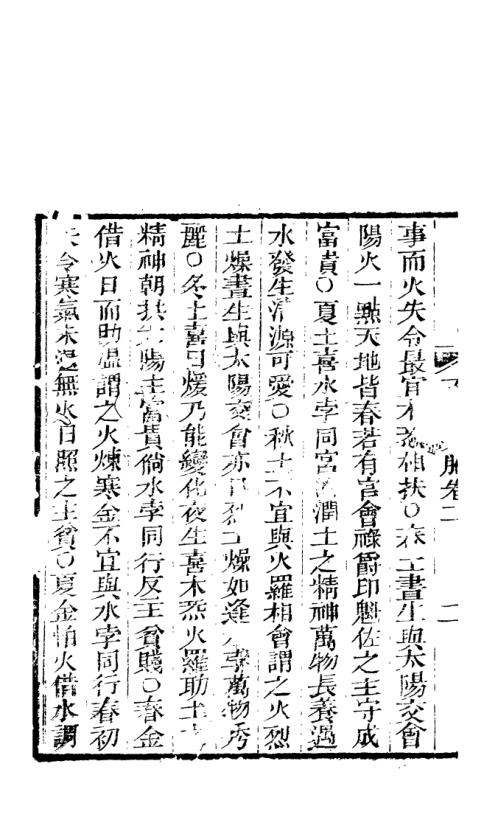 卷二
二
事而火失令最宜木炁相扶〇春土晝生與太陽交會
陽火一點天地皆春若有官會祿爵印魁佐之主守成
富貴〇夏土喜水孛同宮潤土之精神萬物長養遇
水發生清源可愛〇秋土不宜與火羅相會謂之火烈
土燥晝生與太陽交會亦曰烈土燥如逢水孛萬物秀
麗〇冬土喜日煖乃能變化夜生喜木炁火羅助土
精神朝拱太陽主富貴倘水孛同行反主貧賤〇春金
借火日而助溫謂之火煉寒金不宜與水孛同行春初
令寒氣未退無火日照之主貧〇夏金怕火借水調